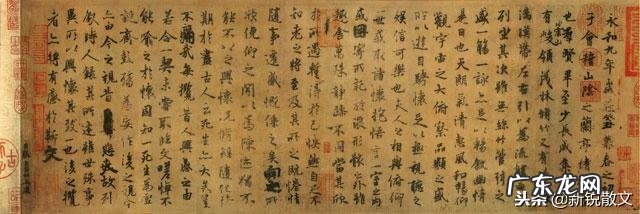 永和九年歲在癸丑暮春之初會
于會稽山陰之蘭亭脩稧事
也羣賢畢至少長咸集此地
有崇山峻領茂林脩竹又有清流激
湍暎帶左右引以為流觴曲水
列坐其次雖無絲竹管弦之
盛一觴一詠亦足以暢敘幽情
是日也天朗氣清惠風和暢仰
觀宇宙之大俯察品類之盛
所以遊目騁懷足以極視聽之
娛信可樂也夫人之相與俯仰
一世或取諸懷抱悟言一室之內
或因寄所託放浪形骸之外雖
趣舍萬殊靜躁不同當其欣
於所遇暫得於己怏然自足不
知老之將至及其所之既惓情
隨事遷感慨係之矣向之所
欣俛仰之間以為陳跡猶不
能不以之興懷況脩短隨化終
期於盡古人云死生亦大矣豈
不痛哉每攬昔人興感之由
若合一契未嘗不臨文嗟悼不
能喻之於懷固知一死生為虛
誕齊彭殤為妄作後之視今
亦由今之視昔悲夫故列
敘時人錄其所述雖世殊事
異所以興懷其致一也後之攬
者亦將有感於斯文
广东龙网
@新锐散文